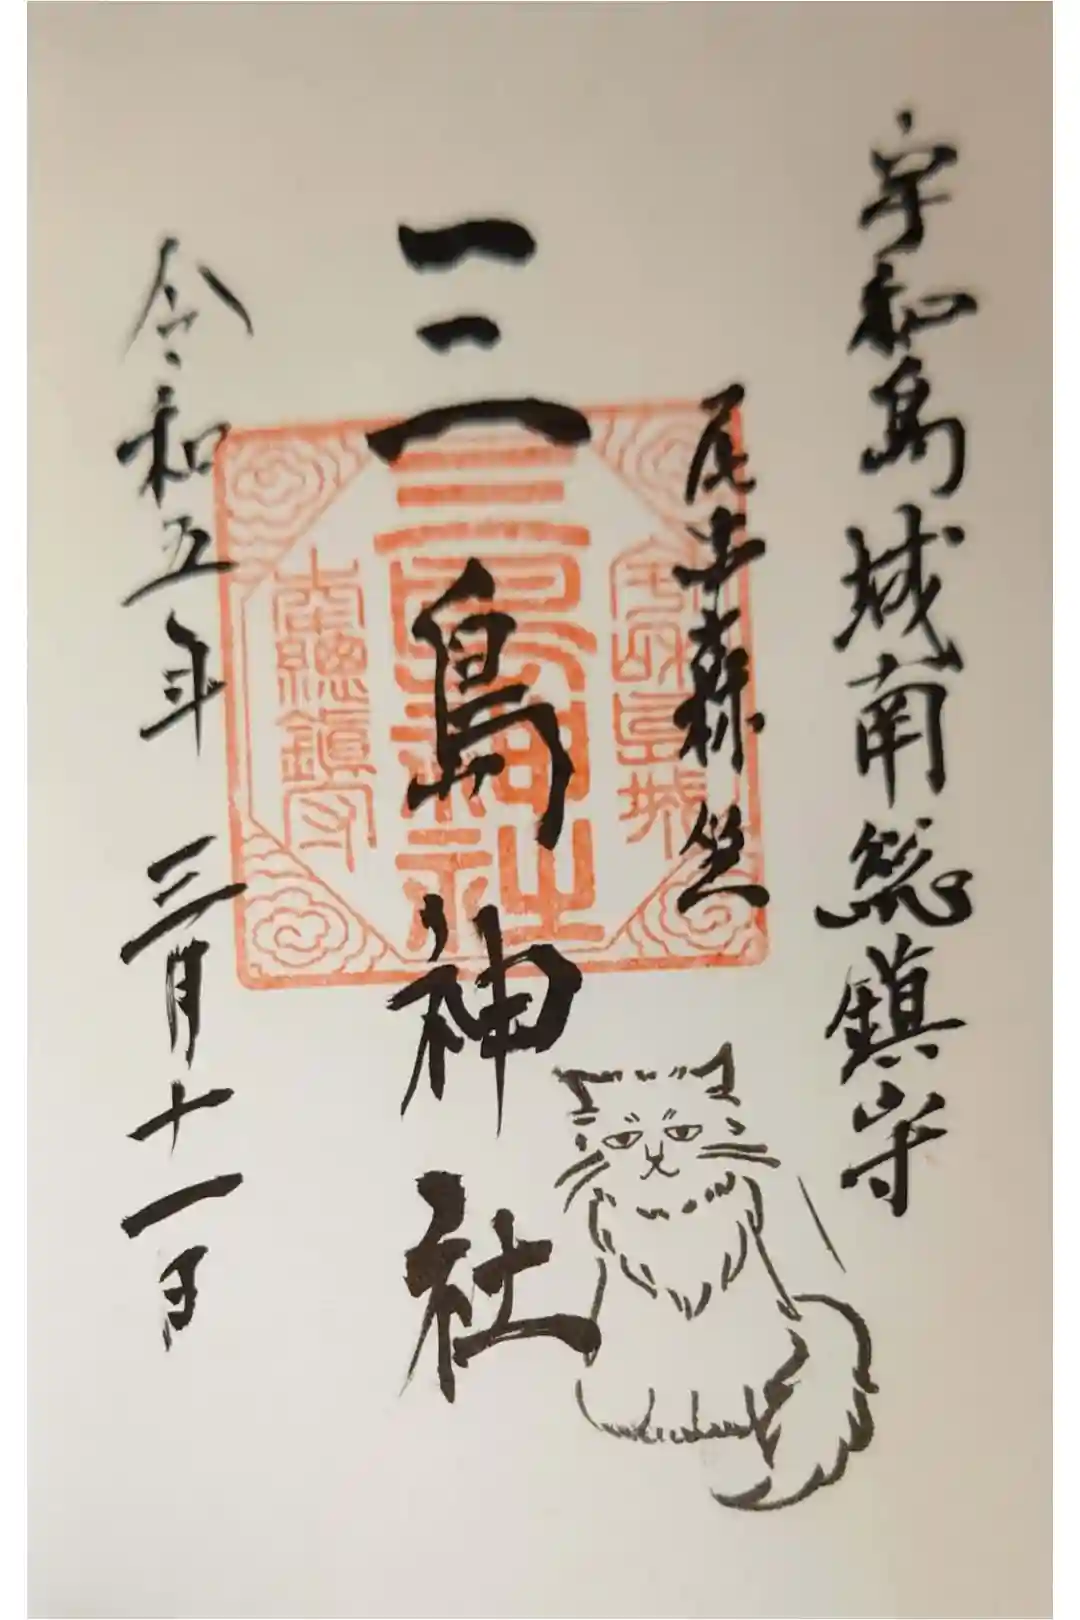 宇和島城南総鎮守
尾串森坐
三島神社
宇和島城
三島神社
南總鎮守
令和五年 三月十一日